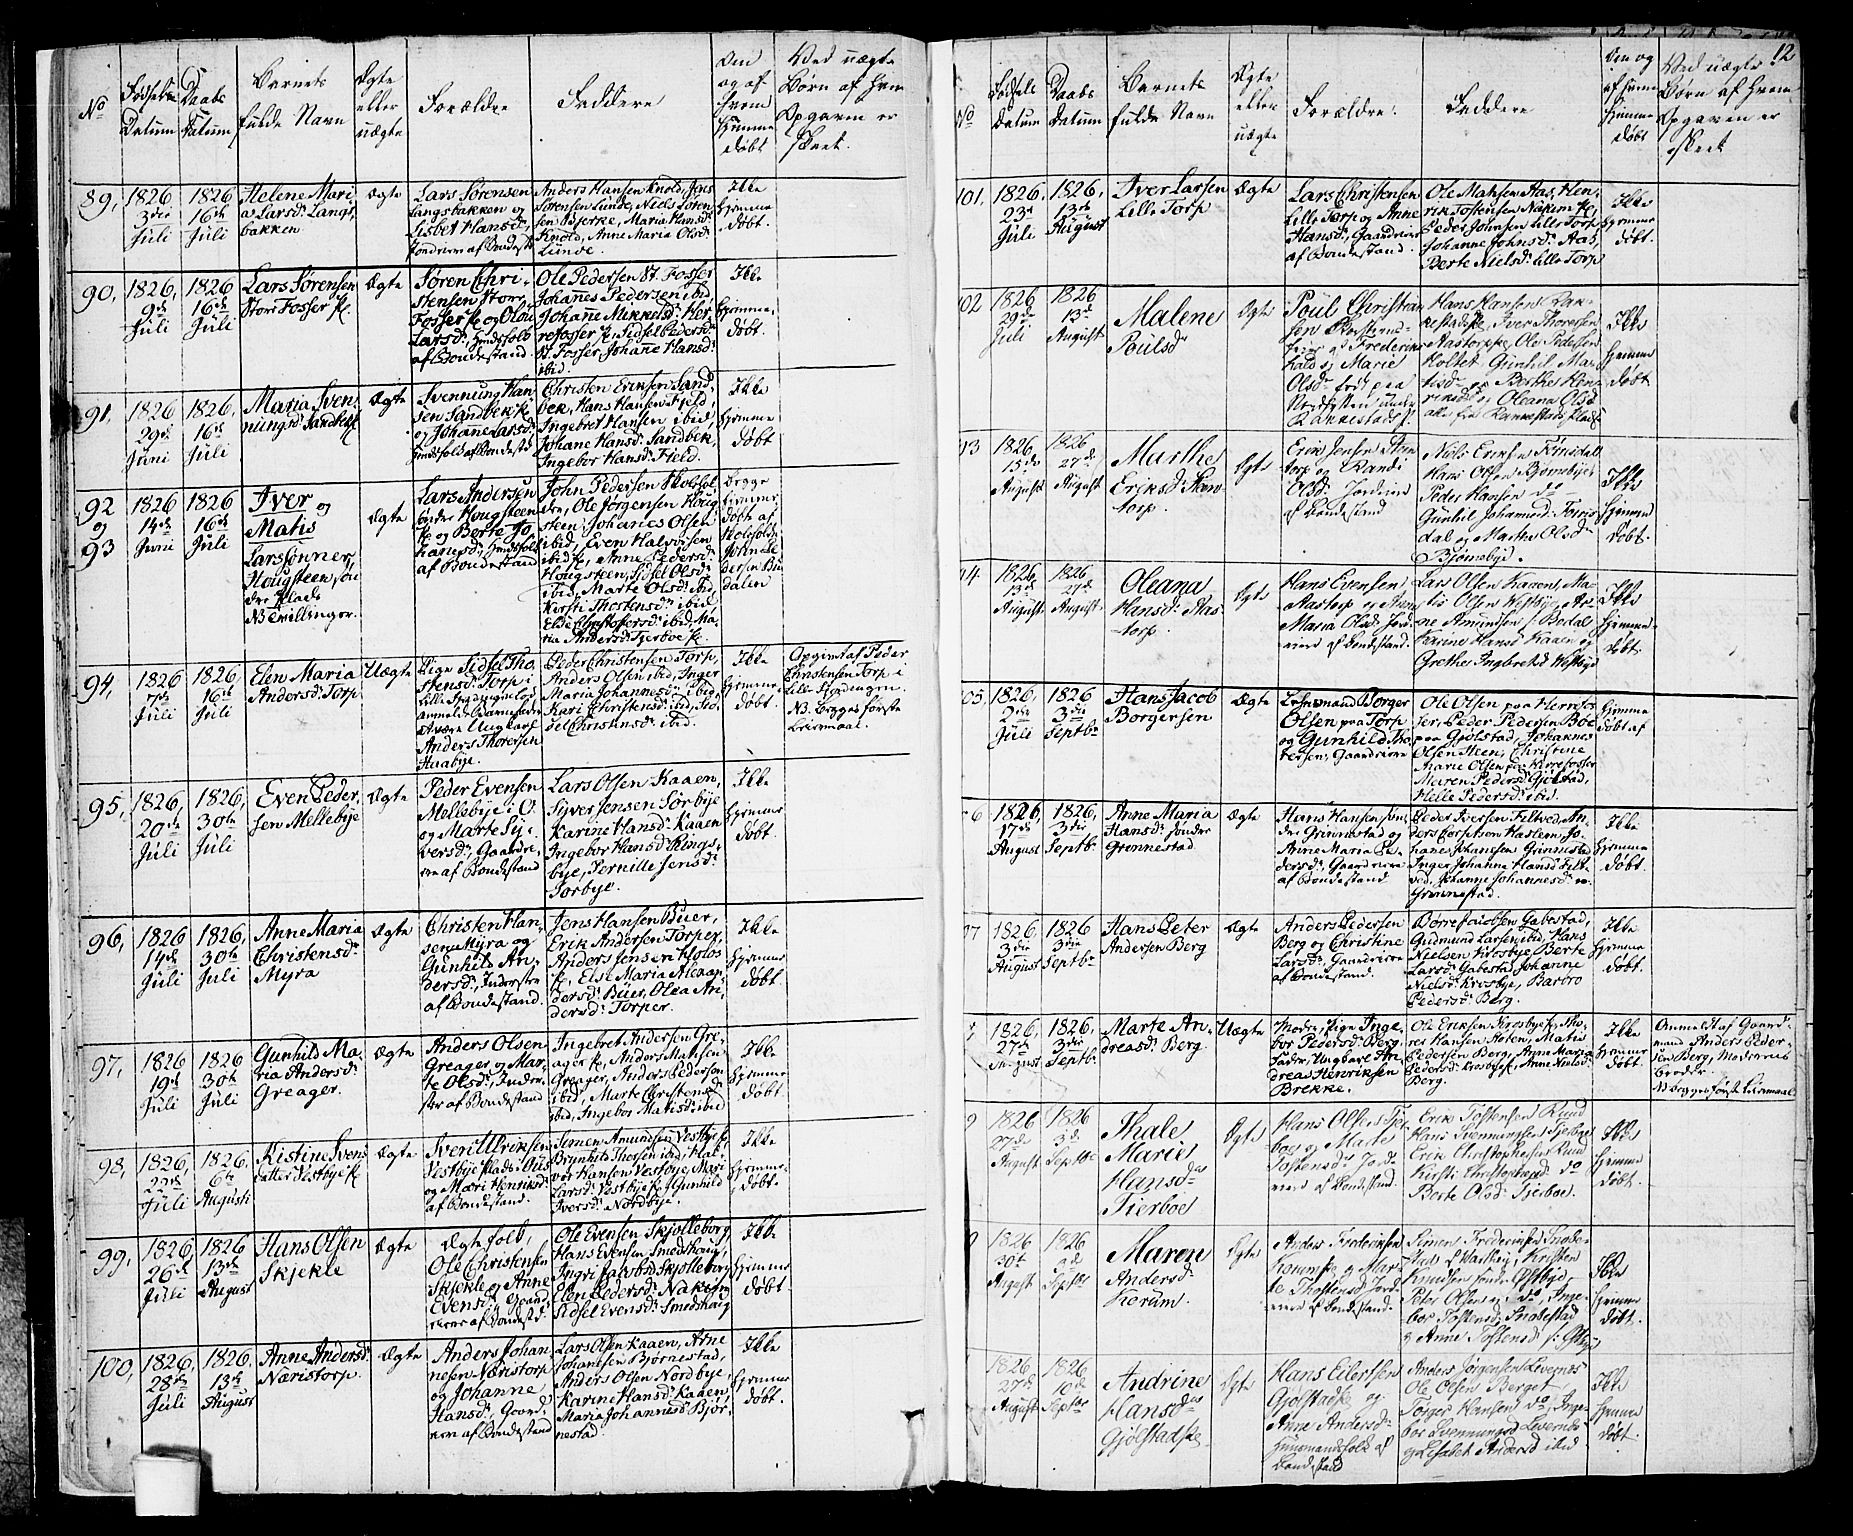 No
Fødsels
Datum
Daabs
Datum
Barnets
fulde Navn
Ægte
eller
uægte
Forældre
Faddere
Om
og af
hvem
hjemme
døbt
Ved uægte
Børn af hvem
Opgaven er
skeet.
89,
1826
3die
Juli
1826
16de
Juli
Helene Mari-
a Larsd. Langs
bakken
Ægte
Lars Sørensen
Langsbakken og
Lisbet Hansd.,
Jordeiere af Bondest.
Anders Hansen Knold, Jens
Sørensen Lunde, Niels Søren
sen Bjerke, Maria Hansd.
Knold, Anne Maria Olsd.
Lunde.
Ikke
hjemme
døbt.
90,
1826,
9de
Juli
1826
16de
Juli
Lars Sørensen
Store Fosser
Ægte
Søren Chri-
stensen Store
Fosser og Olou
Larsd., Huusfolk
af Bondestand.
Ole Pedersen St. Fosser
Johanes Pedersen ibid,
Johanne Mikkelsd. Her-
refosser, Sidsel Pedersd.
St. Fosser, Johanne Hansd.
ibid.
Ikke
hjemme
døbt.
91,
1826
29de
Juni
1826,
16de
Juli
Maria Sven-
nungsd. Sandbek
Ægte
Svennung Han-
sen Sandbek
og Johanne Larsd.
Huusfolk af Bondestd
Christen Eriksen Sand-
bek, Hans Hansen Fjeld,
Ingebret Hansen ibid,
Johane Hansd. Sandbek,
Ingebor Hansd. Field.
Ikke
hjemme
døbt
92
og
93
1826
14de
Juni
1826
16de
Juli
Iver og
Matis
Larssønner,
Hougsteen søn
dre Plads
NB Tvillinger.
Ægte
Lars Andersen
søndre Hougsteen
og Berte Jo-
hanesd., Huusfolk
af Bondestand
John Pedersen Holtskol
den, Ole Jørgensen Houg
steen, Johanes Olsen
ibid, Even Halvorsen
ibid, Anne Pedersd.
Hougsteen, Sidsel Olsd.
ibid, Marte Olsd. ibid,
Kersti Thostensd. ibid
Else Christofersd. ibid, Ma-
ria Andersd. Tjerboe.
Begge
hjemme
døbte af
94,
1826
7de
Juli
1826
16de
Juli
Elen Maria
Andersd. Torp
Uægte
Pige Sidsel Tho-
stensd. Torp i
Lille
anmeldt Barnefader
at være Ungkarl
Anders Thoresen
Huabye.
Peder Christensen Torp,
Anders Olsen ibid, Inger
Maria Johannesd. ibid,
Kari Christensd. ibid, Sid-
sel Christensd. ibid.
Ikke
hjemme
døbt.
Opgivet af Peder
Christensen Torp i
Lille
NB. begges første
Leiermaal.
95,
1826,
20de
Juli
1826,
30te
Juli
Even Peder-
sen Mellebye
Ægte
Peder Evensen
Mellebye i O.
og Marte Sy-
versd., Gaardei-
ere af Bondestand
Lars Olsen Kaaen,
Syver Jensen Sørbye
Karine Hansd. Kaaen
Ingebor Hansd. Rings-
bye, Pernille Jensd.
Sorbye.
Ikke
hjemme
døbt.
96,
1826
14de
Juli
1826,
30te
Juli
Anne Maria
Christensd.
Myra
Ægte
Christen Han-
sen Myra og
Gunhild An-
dersd., Inderster
af Bondestand.
Jens Hansen Büer,
Erik Andersen Torper,
Anders Jensen Kolos
Else Maria Alexan
dersd. Büer, Olea An-
dersd. Torper.
Ikke
hjemme
døbt.
97,
1826
19de
Juli
1826
30te
Juli
Gunhild Ma-
ria Andersd.
Greager.
Ægte
Anders Olsen
Greager og Mar-
te Olsd., Inder-
ster af Bondestand
Ingebret Andersen Gre-
ager, Anders Matisen
Greager, Anders Pedersen
ibid, Marte Christensd.
ibid, Ingebor Matisd. ibid
Ikke
hjemme
døbt.
98,
1826,
22de
Juli
1826,
6te
Augusti
Kistine Svens
datter Vestbye
Ægte
Sven Ulriksen
Vestbye Plads i Øis
og Mari Henriksd.
af Bondestand.
Simen Amundsen Vestbye
Brynhild Thorsen ibid, Hal-
vor Hansen Vestbye, Mari
Larsd. Vestbye, Gunhild
Iversd. Nordbye.
Ikke
hjemme
døbt.
99,
1826
26de
Juli
1826
13de
August
Hans Olsen
Skjekle
Ægte
Ægtefolk,
Ole Christensen
Skjekle og Anne
Evensd., Gaard-
eiere af Bondestd.
Ole Evensen Skjolleborg
Hans Evensen Smedshaug,
Ingri Jacobsd. Skjolleborg
Elen Pedersd. Nakkim,
Sidsel Evensd. Smedshaug
Ikke
hjemme
døbt.
100,
1826,
28de
Juli
1826,
13de
August
Anne Andersd.
Næristorp.
Ægte
Anders Johan-
nesen Næristorp
og Johanne
Hansd., Gaard-
eiere af Bondestand
Lars Olsen Kaaen, Arne
Johannsen Bjørnestad,
Anders Olsen Nordbye,
Karine Hansd. Kaaen,
Maria Johannesd. Bjør-
nestad.
Ikke
hjemme
døbt.
12
No
Fødsels
Datum
Daabs
Datum
Barnets
fulde Navn
Ægte
eller
uægte
Forældre.
Faddere
Om og
af hvem
hjemme
døbt
Ved uægte
Børn af hvem
Opgaven er
skeet
101,
1826,
23de
Juli
1826,
13de
August
Iver Larsen
Lille Torp
Ægte
Lars Christensen
Lille Torp og Anne
Hansd., Gaardeiere
af Bondestand.
Ole Matisen Aas, Hen-
rik Tostensen Nakim,
Peder Johnsen Lille Torp
Johanne Johnsd. Aas,
Berte Nielsd. Lille Torp
Ikke
hjemme
døbt.
02
1826
29de
Juli
1826
13de
August
Malene
Poulsd.
Ægte
Poul Christian
sen
Frederiks
hald og Marie
Olsd. født paa
under
Rakkestad
Hans Hansen Rak-
kestad, Iver Thoresen
Aastorp, Ole Pedersen
Holtet, Gunhil Ma-
tisd. og Berthe Hen-
riksd. og Oleana Olsd.
alle fra Rakkestads Plads
Ikke
hjemme
døbt.
03
1826
15de
August
1826
27de
August
Marthe
Eriksd. Sten-
torp.
Ægte
Erik Jensen Sten
torp og Randi
Olsd. Jordeiere
af Bondestand
Niels Eriksen
Hans Olsen Bjørnebye
Peder Hansen do
Gunhil Johannesd.
dal og Marthe Olsd.
Bjørnebye.
Ikke
hjemme
døbt.
04
1826
13de
August
1826
27de
August
Oleana
Hansd. Aas-
torp.
Ægte
Hans Evensen
Aastorp og Anne
Maria Olsd. Jord-
eiere af Bondestand.
Lars Olsen Kaaen, Ma-
tis Olsen Westbye, Ar-
ne Amundsen Bodal
Karine Hansd. Kaaen og
Grethe Ingbretsd. Westbye
Ikke
hjemme
døbt.
05,
1826,
2den
Juli
1826
3die
Septbr
Hans Jacob
Borgersen
Ægte
Lehnsmand Borger
Olsen paa Torp
og Gunhild Tho-
resen, Gaardeiere
Ole Olsen paa Herrefos-
ser, Peder Pedersen Boe
paa Gjølstad, Johannes
Olsen Steen, Christine
Marie Olsen paa Herrefosser
Maren Pedersd. Gjølstad,
Helle Pedersd. ibid.
Hjemme
døbt af
06
1826,
17de
August
1826,
3die
Septbr
Anne Maria
Hansd. søndre
Grønnestad
Ægte
Hans Hansen søn-
dre Grinnestad og
Anne Maria Pe-
dersd., Gaardeiere
af Bondestand
Peder Iversen Filtved, An-
ders Haslem, Jo-
hanes Johansen Grinnestad
Inger Johanna Hansd. Filt-
ved, Johanne Johannesd.
Grinnestad.
Ikke
hjemme
døbt.
07
1826
3die
August
1826
3die
Septbr
Hans Peter
Andersen Berg
Ægte
Anders Pedersen
Berg og Christine
Larsd., Gaardeiere
af Bondestand.
Børre Jacobsen Gabestad,
Gudmund Larsen ibid, Hans
Nielsen Krosbye, Berte
Larsd. Gabestad, Johanne
Nielsd. Krosbye, Barbro
Pedersd. Berg.
Ikke
hjemme
døbt.
1826,
27de
August
1826,
3die
Septbr
Marte An-
dreasd. Berg.
Uægte
Moder, Pige Inge-
bor Pedersd. Berg
Fader, Ungkarl An-
dreas Henriksen
Brekke.
Ole Eriksen Krosbye, Tho-
res Hansen Hoten, Matis
Pedersen Berg, Anne Maria
Pedersd. Krosbye, Anne Nielsd.
Berg.
Ikke
hjemme
døbt.
Anmeldt af Gaard-
mand Anders Peder-
sen Berg, Moderens
Broder
NB begges første Leiermaal
9
1826
27de
August
1826
3de
Septbr
Thale
Marie
Hansd.
Tierboe
Ægte
Hans Olsen Tjer-
boe og Marte
Tostensd. Jord-
eiere af Bondestand.
Erik Tostensen Ruud
Hans Svenningsen Tjerboe
Erik Christophersen Ruud
Kirsti Christophersd. do
Berte Olsd. Tjerboe.
Ikke
hjemme
døbt.
0
1826
30te
August
1826
9de
Septbr
Maren
Andersd.
Kierum.
Ægte
Anders Frederiksen
og Mar-
te Thostensd. Jord-
eiere af Bondestand.
Simen Frederiksen Snobe-
stad, Kristen
Knudsen søndre Østbye,
Peter Olsen do, Inge-
bor Tostensd. Snobestad
og Anne Tostensd.
Ikke
hjemme
døbt.
1826
27de
August
1826
10de
Septbr
Andrine
Hansd.
Gjølstad
Ægte
Hans Eilertsen
Gjølstad og
Anne Andersd.
Huusmandsfolk af
Bondestand
Anders Jørgensen Levernes
Ole Olsen Berget
Torger Hansen do, Inge-
bor Svenningsd. Levernes
og Lisabet Andersd. ibid
Ikke
hjemme
døbt.